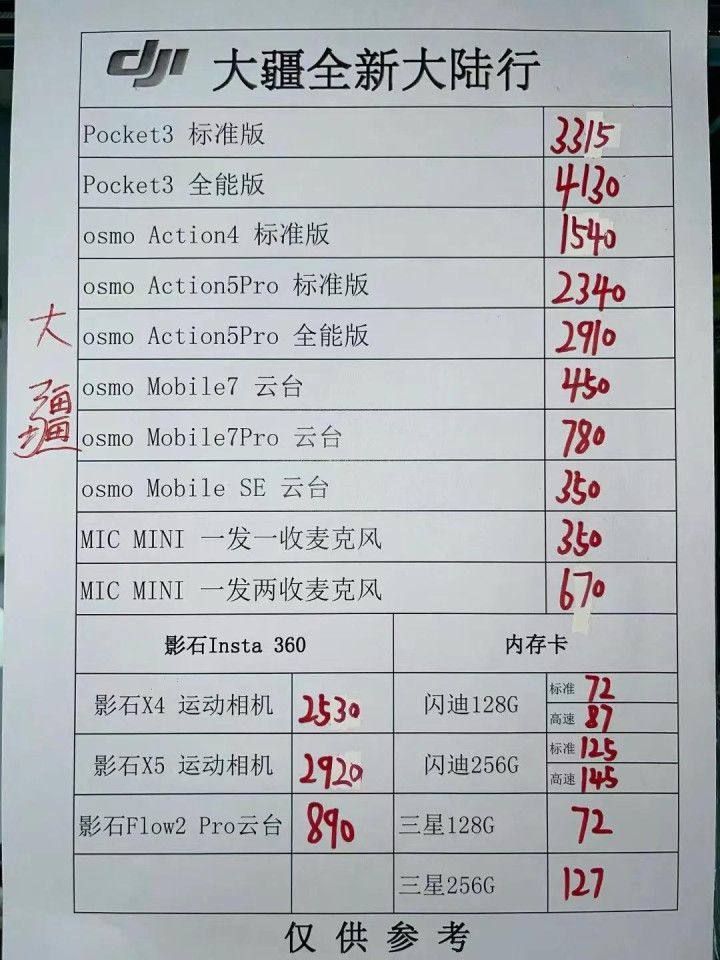 dji 大疆全新大陆行
Pocket3 标准版 3315
Pocket3 全能版 4130
osmo Action4 标准版 1540
osmo Action5Pro 标准版 2340
osmo Action5Pro 全能版 2910
osmo Mobile7 云台 450
osmo Mobile7Pro 云台 780
osmo Mobile SE 云台 350
MIC MINI 一发一收麦克风 350
MIC MINI 一发两收麦克风 670
大疆
影石Insta 360 内存卡
影石X4 运动相机 2530 闪迪128G 标准 72
高速 87
影石X5 运动相机 2920 闪迪256G 标准 125
高速 145
影石Flow2 Pro云台 890 三星128G 72
三星256G 127
仅供参考